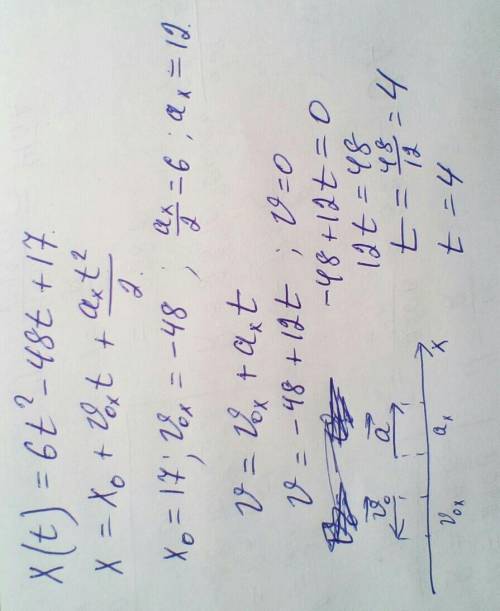 x(t) = 6t² - 48t + 17
x = x₀ + v₀ₓt + aₓt²/2
x₀ = 17; v₀ₓ = -48; aₓ/2 = 6; aₓ = 12
v = v₀ₓ + aₓt
v = -48 + 12t; v = 0
-48 + 12t = 0
12t = 48
t = 48/12 = 4
t = 4
v⃗₀ a⃗
v₀ₓ aₓ x